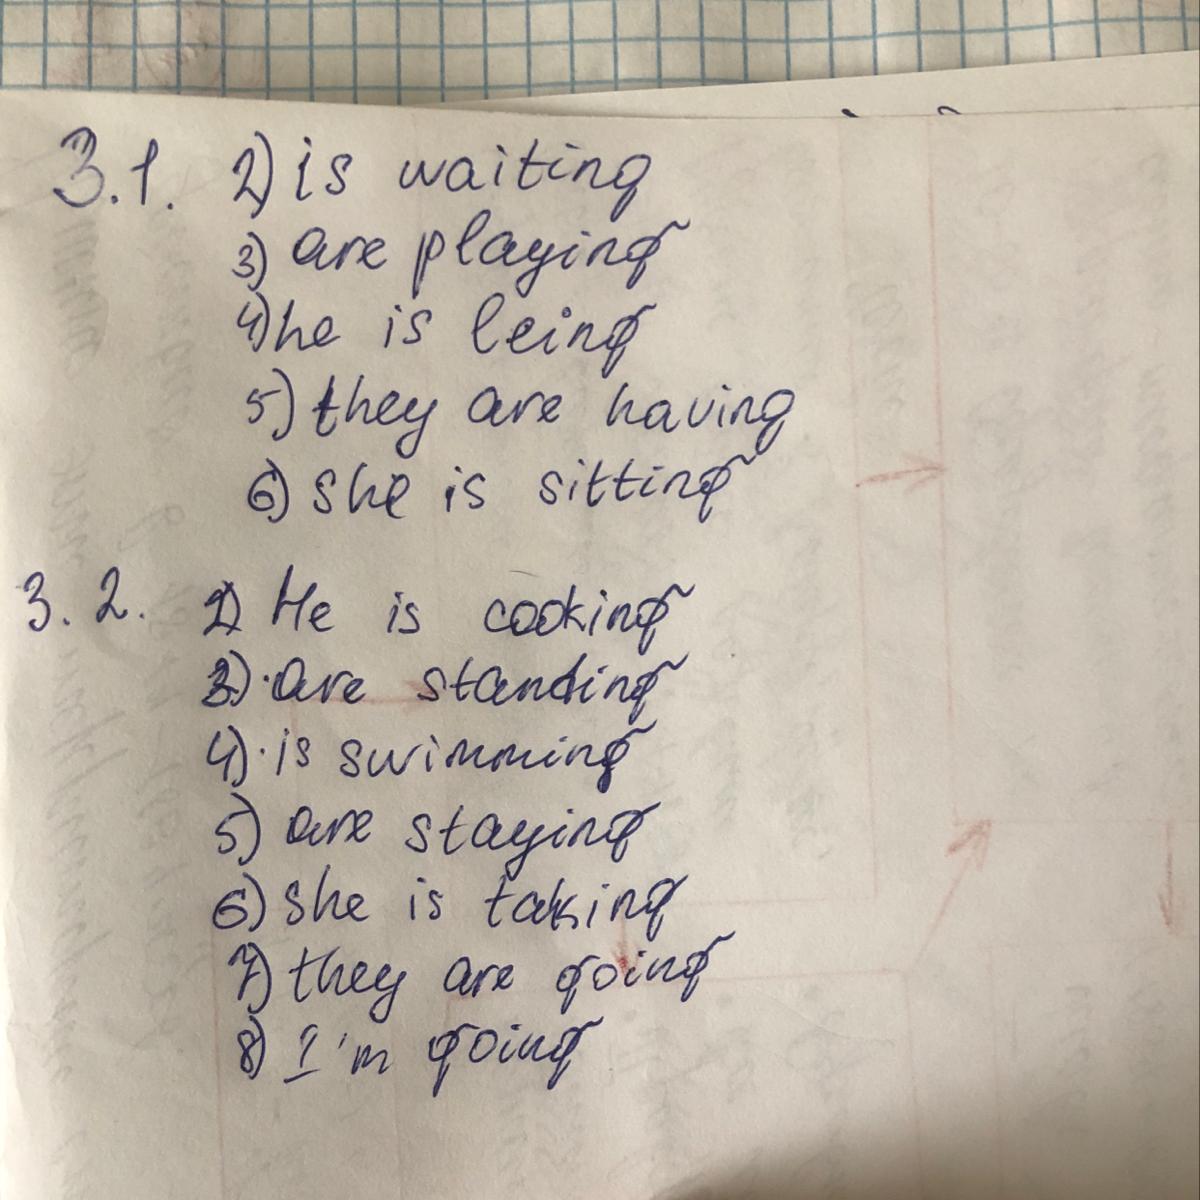 3.1. 2) is waiting
3) are playing
4) he is leing
5) they are having
6) she is sitting
3.2. 1) He is cooking
3) are standing
4) is swimming
5) are staying
6) she is taking
7) they are going
8) I'm going